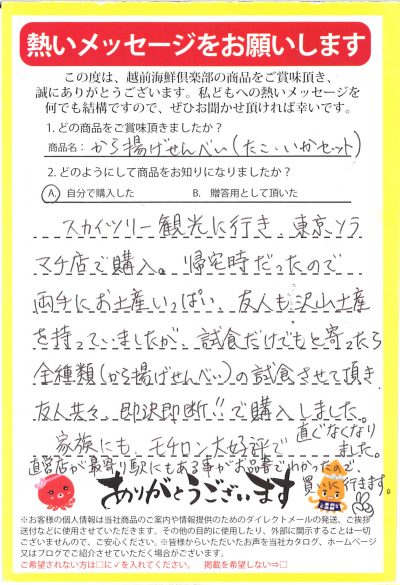 熱いメッセージをお願いします
この度は、越前海鮮倶楽部の商品をご賞味頂き、
誠にありがとうございます。私どもへの熱いメッセージを
何でも結構ですので、ぜひお聞かせ頂ければ幸いです。
1. どの商品をご賞味頂きましたか？
商品名： から揚げせんべい(たこ・いかセット)
2. どのようにして商品をお知りになりましたか？
A. 自分で購入した B. 贈答用として頂いた
スカイツリー観光に行き、東京ソラ
マチ店で購入。帰宅時だったので
両手にお土産いっぱい、友人も沢山土産
を持っていましたが、試食だけでもと寄ったら
全種類(から揚げせんべい)の試食させて頂き
友人共々、即決即断!!で購入しました。
家族にも、モチロン大好評で直ぐなくなり
ました。
直営店が最寄り駅にもある事がお品書でわかったので、
買いに行きます。
ありがとうございます
※お客様の個人情報は当社商品のご案内や情報提供のためのダイレクトメールの発送、ご挨拶
付などに使用させていただきます。その他の目的に使用したり、外部に開示することは一切
ございませんので、ご安心ください。※皆様からいただいたお声を当社カタログ、ホームページ
又はブログでご紹介させていただく場合がございます。
ご希望されない方は□に✓を入れてください。 掲載を希望しない⇒□